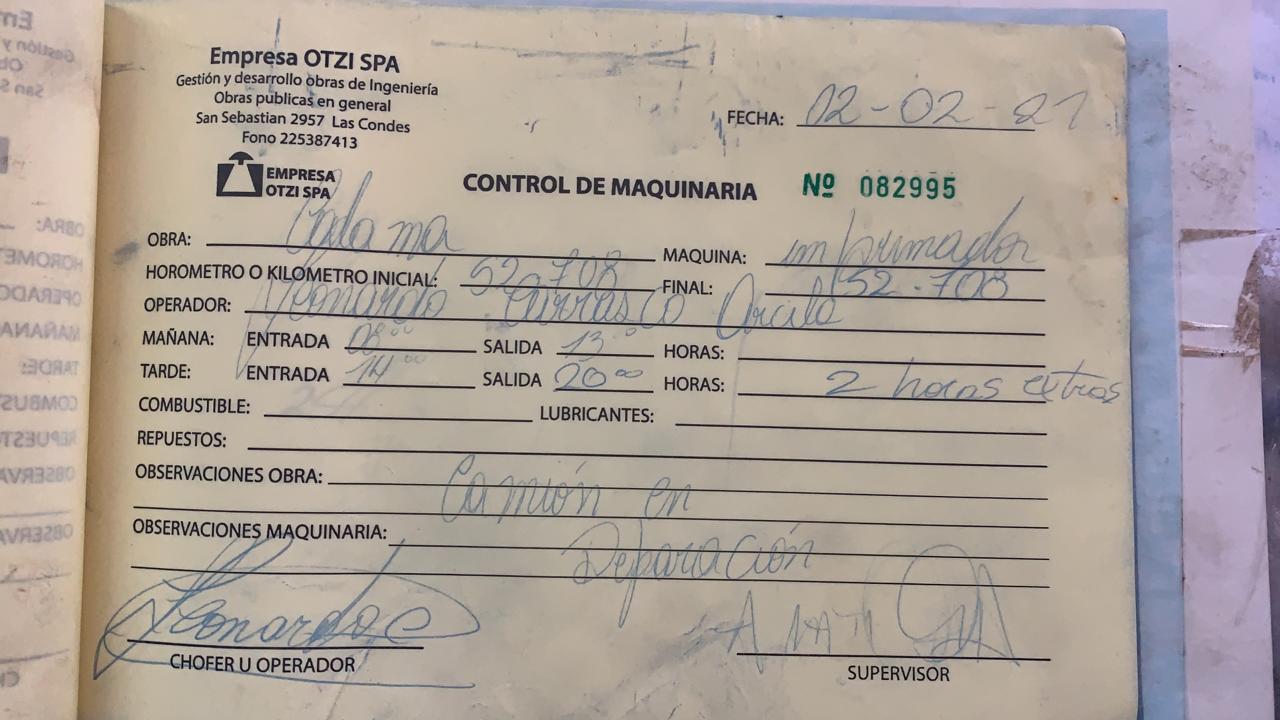 Empresa OTZI SPA
Gestión y desarrollo obras de Ingeniería
Obras publicas en general
San Sebastian 2957 Las Condes
Fono 225387413
FECHA: 02-02-21
EMPRESA
OTZI SPA
CONTROL DE MAQUINARIA Nº 082995
OBRA: Calama MAQUINA: imprimador
HOROMETRO O KILOMETRO INICIAL: 52.708 FINAL: 152.708
OPERADOR: Leonardo Carrasco
MAÑANA: ENTRADA 08⁰⁰ SALIDA 13⁰⁰ HORAS:
TARDE: ENTRADA 14⁰⁰ SALIDA 20⁰⁰ HORAS: 2 horas extras
COMBUSTIBLE: LUBRICANTES:
REPUESTOS:
OBSERVACIONES OBRA: Camión en
OBSERVACIONES MAQUINARIA: Reparación
Leonardo C
CHOFER U OPERADOR
SUPERVISOR